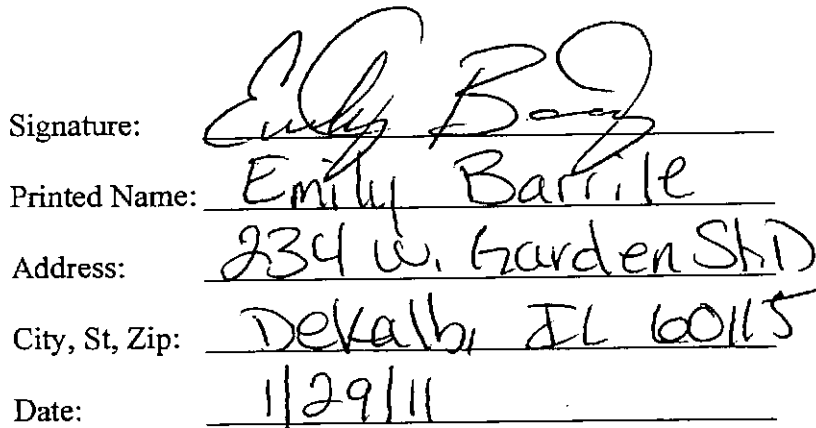 Signature: Emily
Printed Name: Emily Barrile
Address: 234 W. Garden St. D
City, St, Zip: Dekalb, IL 60115
Date: 1/29/11